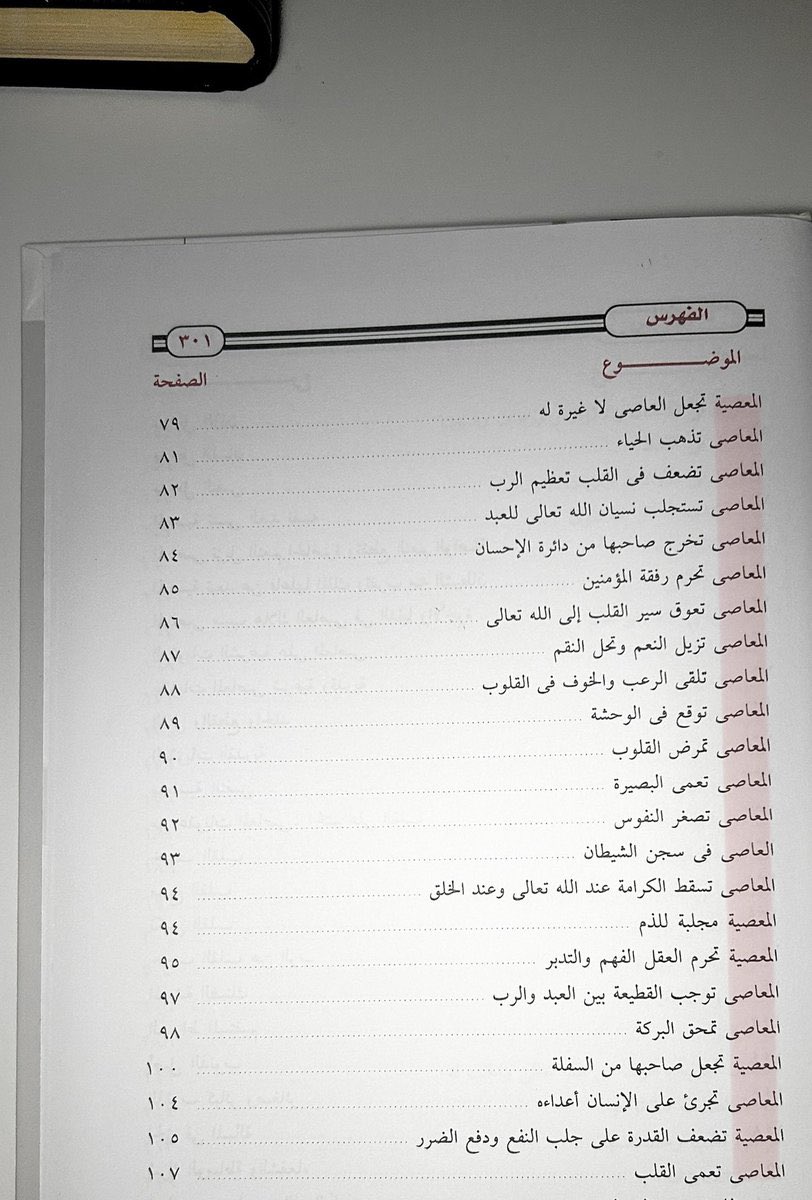 الفهرس ٣٠١
الموضـــــوع الصفحة
المعصية تجعل العاصى لا غيرة له ٧٩
المعاصى تذهب الحياء ٨١
المعاصى تضعف فى القلب تعظيم الرب ٨٢
المعاصى تستجلب نسيان الله تعالى للعبد ٨٣
المعاصى تخرج صاحبها من دائرة الإحسان ٨٤
المعاصى تحرم رفقة المؤمنين ٨٥
المعاصى تعوق سير القلب إلى الله تعالى ٨٦
المعاصى تزيل النعم وتحل النقم ٨٧
المعاصى تلقى الرعب والخوف فى القلوب ٨٨
المعاصى توقع فى الوحشة ٨٩
المعاصى تمرض القلوب ٩٠
المعاصى تعمى البصيرة ٩١
المعاصى تصغر النفوس ٩٢
العاصى فى سجن الشيطان ٩٣
المعاصى تسقط الكرامة عند الله تعالى وعند الخلق ٩٤
المعصية مجلبة للذم ٩٤
المعصية تحرم العقل الفهم والتدبر ٩٥
المعاصى توجب القطيعة بين العبد والرب ٩٧
المعاصى تمحق البركة ٩٨
المعصية تجعل صاحبها من السفلة ١٠٠
المعاصى تجرئ على الإنسان أعداءه ١٠٤
المعصية تضعف القدرة على جلب النفع ودفع الضرر ١٠٥
المعاصى تعمى القلب ١٠٧